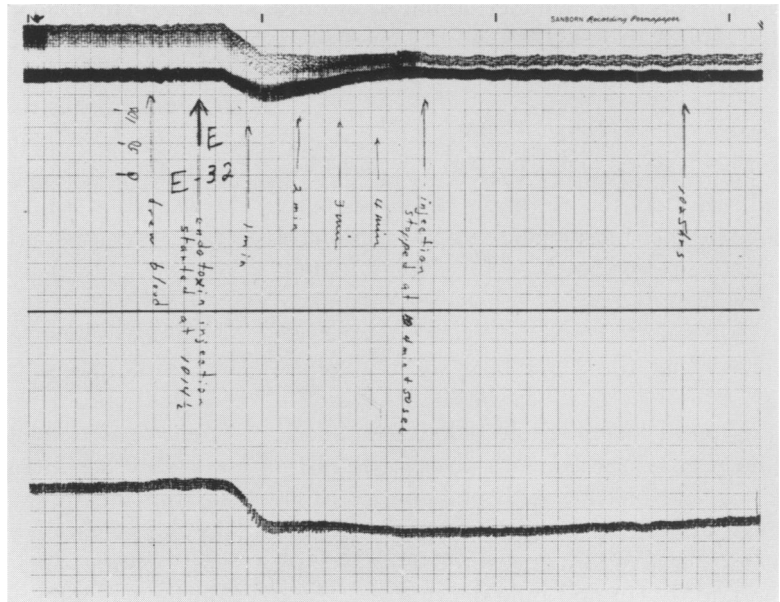 SANBORN Recording Permapaper
drew blood
E
E-32
endotoxin injection
started at 1014½
1 min
2 min
3 min
4 min
injection
stopped at 4 min + 50 sec
1025 hrs